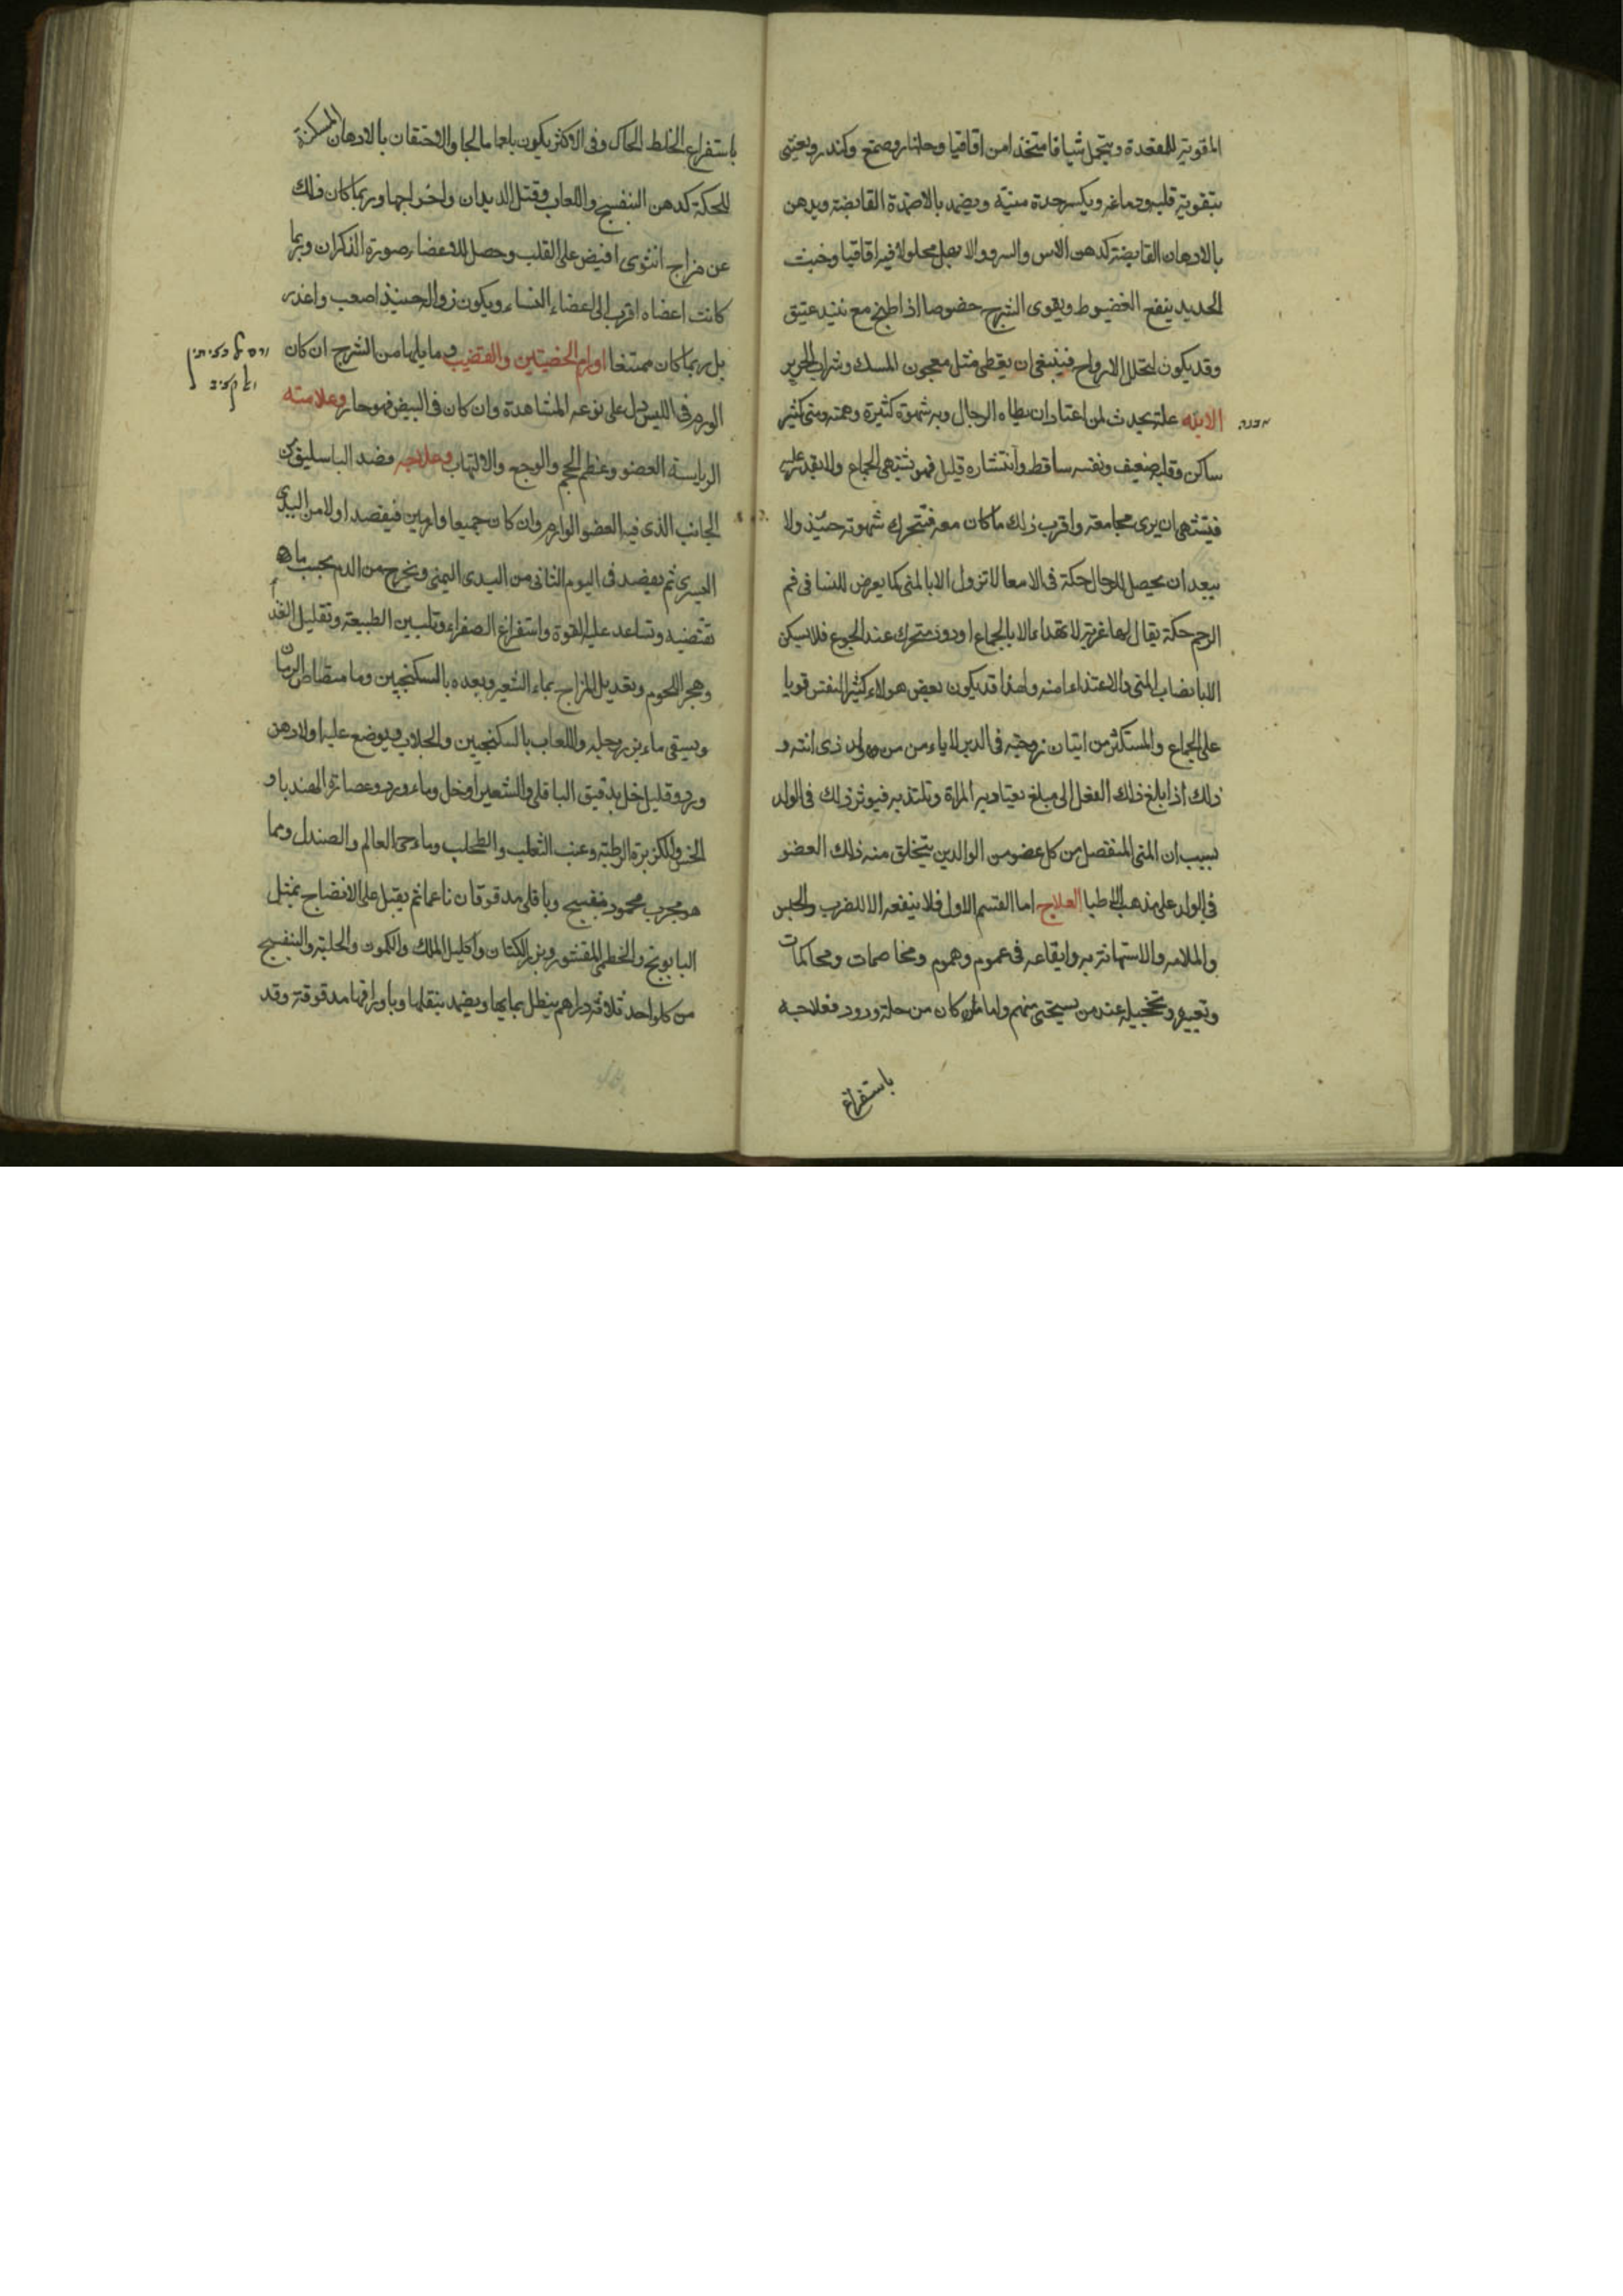 المقوية للمقعدة ويتحمل شيافا متخذا من اقاقيا وجلنار وصمغ وكندر ويعتنى
بتقوية قلبه ودماغه ويكسر حدة منيه ويضمد بالاضمدة القابضة ويدهن
بالادهان القابضة كدهن الاس والسرو والابهل محلولا فيه اقاقيا وخبث
الحديد ينفع العضيوط ويقوى الشرج خصوصا اذا طبخ مع نبيذ عتيق
وقد يكون لتحلل الارواح فينبغى ان يعطى مثل معجون المسك وشراب الحرير
الابنه علة يحدث لمن اعتاد ان يطاه الرجال وبه شهوة كثيرة وهمته ومنى كثير
ساكن وقلبه ضعيف ونفسه ساقط وانتشاره قليل فهو يشتهى الجماع ولا يقدر عليه
فيشتهى ان يرى مجامعة واقرب ذلك ما كان معه فيتحرك شهوته حينئذ ولا
يبعد ان يحصل للرجال حكة فى الامعا لا تزول الا بالمنى كما يعرض للنسا فى فم
الرحم حكة يقال لها غريه لا تهداء الا بالجماع او دود متحرك عند الجوع فلا يسكن
الا بانصاب المنى والاغتذاء منه ولهذا قد يكون بعض هولاء كثير النفس قويا
على الجماع والمستكثر من اتيان زوجته فى الدبر لا ياء من من ولد ذى ابنه و
ذلك اذا بلغ ذلك الفعل الى مبلغ يعتاد به المراة وتلتذ به فيوثر ذلك فى الولد
بسبب ان المنى المنفصل من كل عضو من الوالدين يتخلق منه ذلك العضو
فى الولد على مذهب الاطبا العلاج اما القسم الاول فلا ينفعه الا للضرب والحبس
والملامه والاستهانة به وايقاعه فى غموم وهموم ومخاصمات ومحاكمات
وتعييره وتخجيله عند من يستحى منهم واما مان كان من حلة ودود فعلاجه
باستفراغ
باستفراغ الخلط الحاك وفى الاكثر يكون بلعما مالحا والاحتقان بالادهان المسكنة
للحكة كدهن البنفسج واللعاب وقتل الديدان واخراجها وربما كان ذلك
عن مزاج انثوى افيض على القلب وحصل للاعضاء صورة الذكران وربما
كانت اعضاه اقرب الى اعضاء النساء ويكون زواله حينئذ اصعب واعذر
بل ربما كان ممتنعا اورام الخصيتين والقضيب وما يليها من الشرج ان كان
الورم فى الليس دل على نوعه المشاهدة وان كان فى البيض فهو حار وعلامته
الرياسة العضو وعظم الحجم والوجع والالتهاب وعلاجه فصد الباسليق من
الجانب الذى فيه العضو الوارم وان كان جميعا وارمين فيفصد اولا من اليدى
اليسرى ثم يفصد فى اليوم الثانى من اليدى اليمنى ويخرج من الدم بحسب ما
تقتضيه وتساعد عليه القوة واستفراغ الصفراء وتليين الطبيعة وتقليل الغذ
وهجر اللحوم وتعديل المزاج بماء الشعير وبعده بالسكنجبين وما مستطاط الرمان
ويسقى ماء بزر رجله واللعاب بالسكنجبين والجلاب ويوضع عليه اولا دهن
ورد وقليل خل بدقيق الباقلى والشعير او خل وماء ورد وعصارة الهندبا و
الخس والكزبرة الرطبة وعنب الثعلب والطحلب وماء حى العالم والصندل ومما
هو مجرب محمود بنفسج وباقلى مدقوقان ناعما ثم يقبل على الانضاج بمثل
البابونج والخطمى المقشور وبزر الكتان واكليل الملك والكمون والحلبة والبنفسج
من كل واحد ثلاثة دراهم ينطل بمايها ويضمد بثفلها وباوراقها مدقوقة وقد